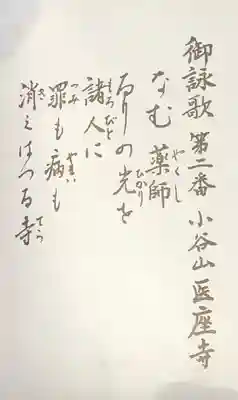 御詠歌 第二番 小谷山 医座寺
なむ薬師
るりの光を
諸人に
罪も病も
消えはつる寺
やくし
ひかり
もろびと
つみ
やまい
き
てら